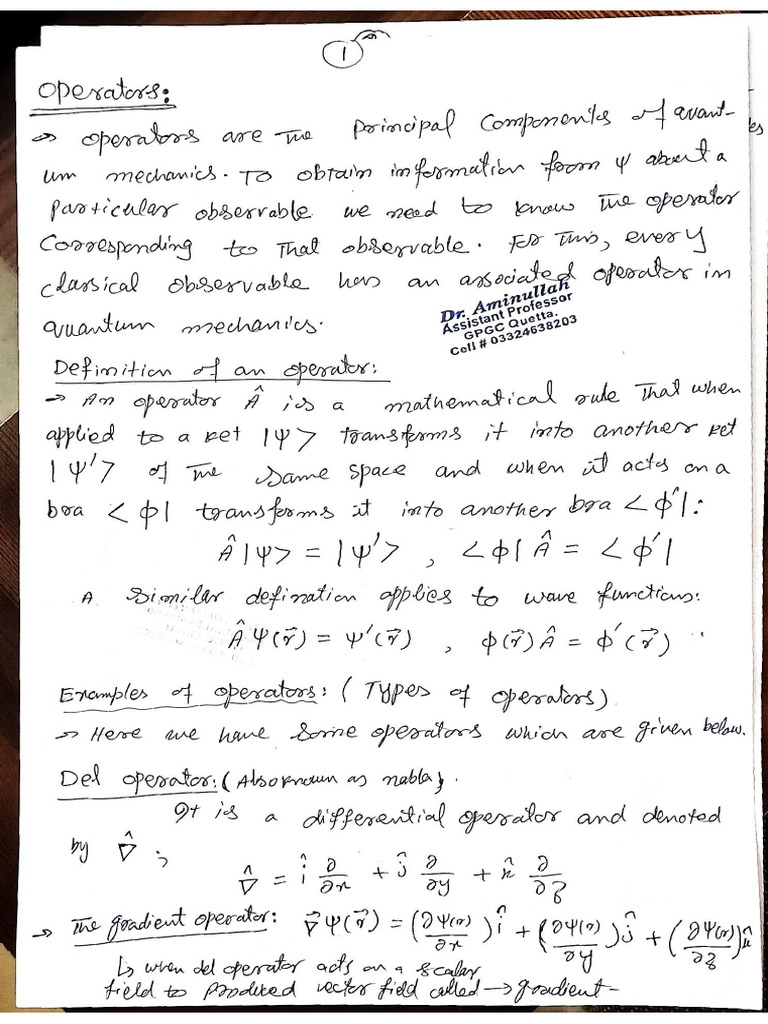 1
Operators:
→ Operators are the principal components of quant-
um mechanics. To obtain information from ψ about a
particular observable we need to know the operator
corresponding to that observable. For this, every
classical observable has an associated operator in
quantum mechanics.
Dr. Aminullah
Assistant Professor
GPGC Quetta.
Cell # 03324638203
Definition of an operator:
→ An operator Â is a mathematical rule that when
applied to a ket |ψ> transforms it into another ket
|ψ'> of the same space and when it acts on a
bra <ϕ| transforms it into another bra <ϕ'|:
Â|ψ> = |ψ'> , <ϕ|Â = <ϕ'|
A similar defination applies to wave functions:
Âψ(r⃗) = ψ'(r⃗) , ϕ(r⃗)Â = ϕ'(r⃗)
Examples of operators: (Types of operators)
→ Here we have some operators which are given below.
Del operator: (Also known as nabla).
It is a differential operator and denoted
by ∇̂ ;
∇̂ = î ∂/∂x + ĵ ∂/∂y + k̂ ∂/∂z
→ The gradient operator: ∇⃗ψ(r⃗) = (∂ψ(r)/∂x)î + (∂ψ(r)/∂y)ĵ + (∂ψ(r)/∂z)k̂
↳ when del operator acts on a scalar
field to produced vector field called → gradient-